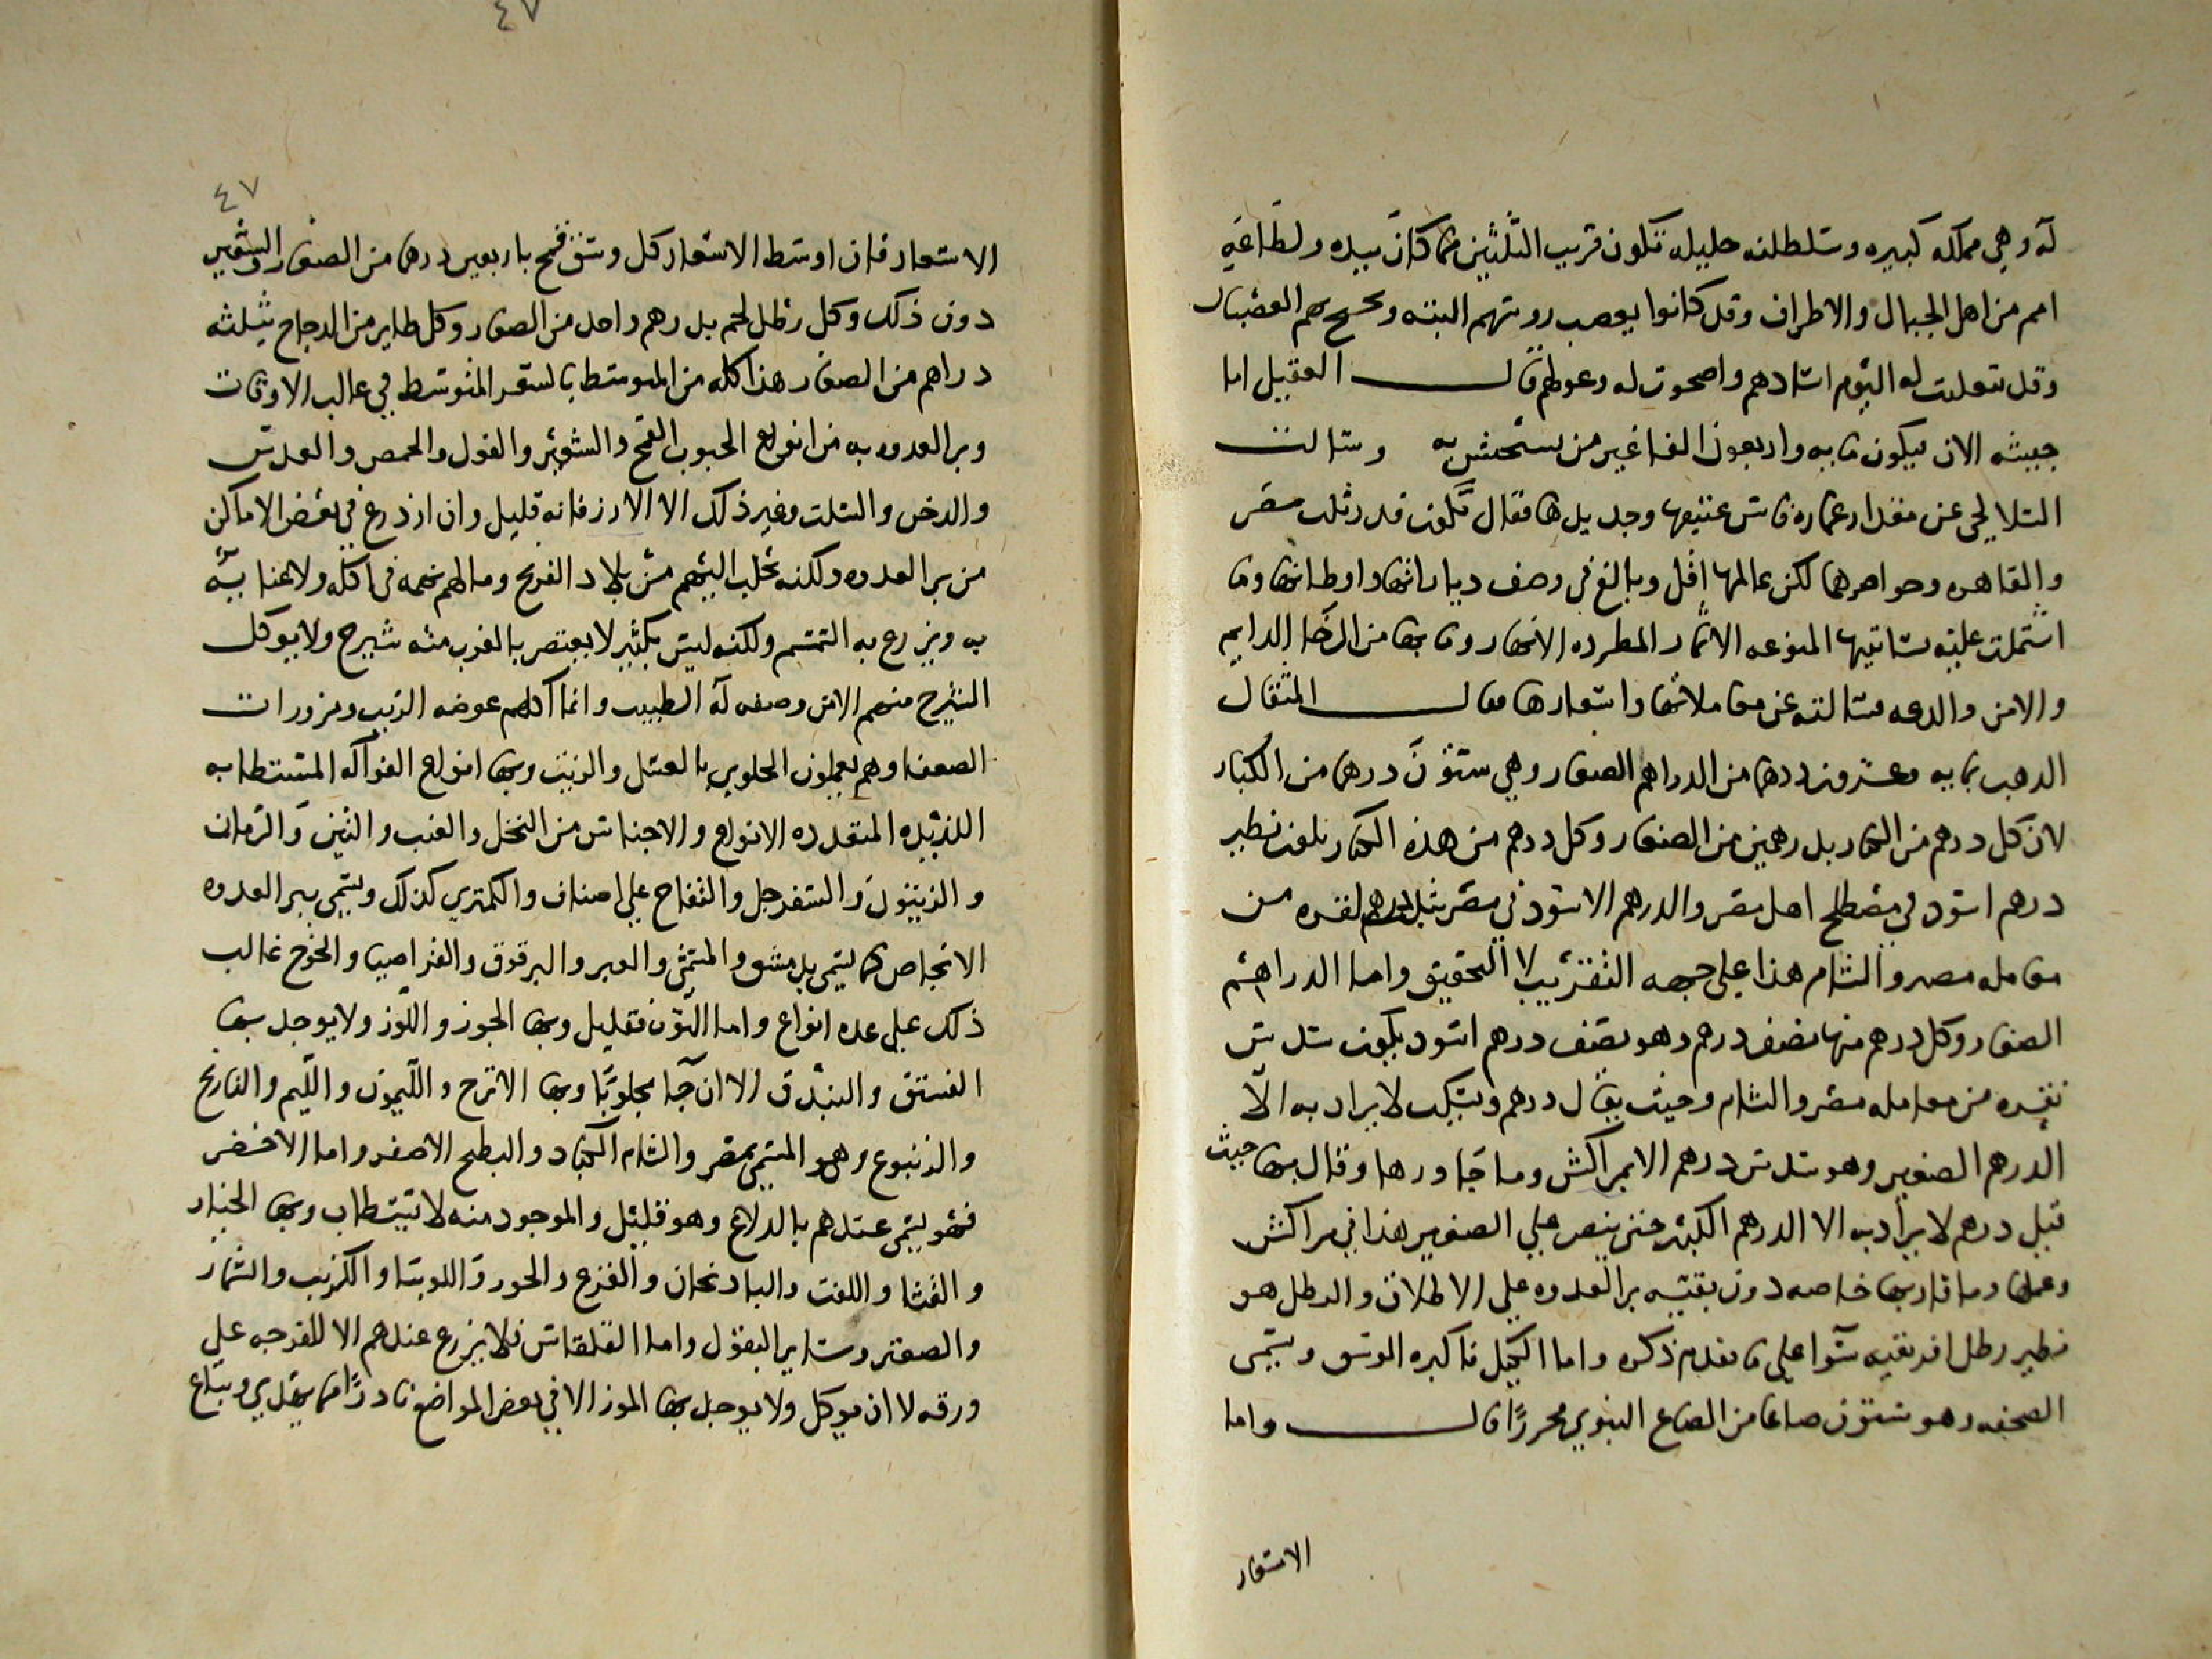 له وهي مملكه كبيره وسلطلنه جليله تكون قريب الثلثين مما كان بيده ولطاعيه
امم من اهل الجبال والاطراف وقد كانوا بعصب روىتهم البته وىحىح بهم العضبان
وقد ىعلىت له اليوم اسادهم واصحوت له وعوطهم قال العقيلي اما
جيشه الان فيكون مايه واربعون الفا غير من يستجيش به وسالت
السلالحي عن مقدار عماره فاس عتيقها وجديدها فقال تكون قدر ثلث مصر
والقاهره وحواضرهما لكن عالمها اقل وبالغ في وصف دياراتها واوطانها وما
اشتملت عليه بساتينها المنوعه الاثمار المطرده الانهار وما بها من الرخا الدايم
والامن والدعه فسالته عن معاملاتها واسعارها فقال المثقال
الدهب بمايه وعشرون درهما من الدراهم الصغار وهي ستون درهما من الكبار
لان كل درهم من الكبار بدرهمين من الصغار وكل درهم من هذه الكبار يكون نظير
درهم اسود في مصطلح اهل مصر والدرهم الاسود في مصر ثلث درهم نقره من
معامله مصر والشام هذا علي جهه التقريب لا التحقيق واما الدراهم
الصغار وكل درهم منها نصف درهم وهو نصف درهم اسود يكون سدس
نقره من معامله مصر والشام وحيث يقال درهم ويسكت لا يراد به الا
الدرهم الصغير وهو سدس درهم الا بمراكش وما جاورها وقال بها حيث
قيل درهم لا يراد به الا الدرهم الكبير حتي ينص علي الصغير هذا في مراكش
وعملها وما قاربها خاصه دون بقيه بر العدوه علي الاطلاق والرطل هو
نظير رطل افريقيه سوا علي ما تقدم ذكره واما الكيل فاكبره الوسق ويسمي
الصحفه وهو ستون صاعا من الصاع النبوي محررا قال واما
الاسعار
٤٧
٤٧
الاسعار فان اوسط الاسعار كل وسق قمح باربعين درهما من الصغار والشعير
دون ذلك وكل رطل لحم بدرهم واحد من الصغار وكل طاير من الدجاج بثلثه
دراهم من الصغار هذا كله من المتوسط بالسعر المتوسط في غالب الاوقات
وبر العدوه به من انواع الحبوب القمح والشعير والفول والحمص والعدس
والدخن والسلت وغير ذلك الا الارز فانه قليل وان ازدرع في بعض الاماكن
من بر العدوه ولكنه مجلب اليهم من بلاد الفرنج وما لهم نهمه في اكله ولا عنايه
به ويزرع به السمسم ولكنه ليس بكثير لا يعتصر بالغرب منه شيرج ولا يوكل
الشيرج منهم الا من وصفه له الطبيب وانما اكلهم عوضه الزيت ومزورات
الضعفا وهم يعملون الحلوي بالعسل والزيت وبها انواع الفواكه المستطابه
اللذيذه المتعدده الانواع والاجناس من النخل والعنب والتين والرمان
والزيتون والسفرجل والتفاح علي اصناف والكمتري كذلك ويسمي ببر العدوه
الانجاص كما يسمي بدمشق والمشمش والعير والبرقوق والقراصيا والخوخ غالب
ذلك علي عده انواع واما التوت فقليل وبها الجوز واللوز ولا يوجد بها
الفستق والبندق الا ان جا مجلوبا وبها الاترج والليمون والليم والنارنج
والزنبوع وهو المسمي بمصر والشام الكباد والبطيح الاصفر واما الاخضر
فهو يسمي عندهم بالدلاع وهو قليل والموجود منه لا تستطاب وبها الخيار
والقثا واللفت والبادنجان والقرع والجزر واللوبيا والكرنب والشمار
والصعتر وساير البقول واما القلقاس فلا يزرع عندهم الا للفرجه علي
ورقه لا ان يوكل ولا يوجد بها الموز الا في بعض المواضع نادرا مما يهدي ويباع